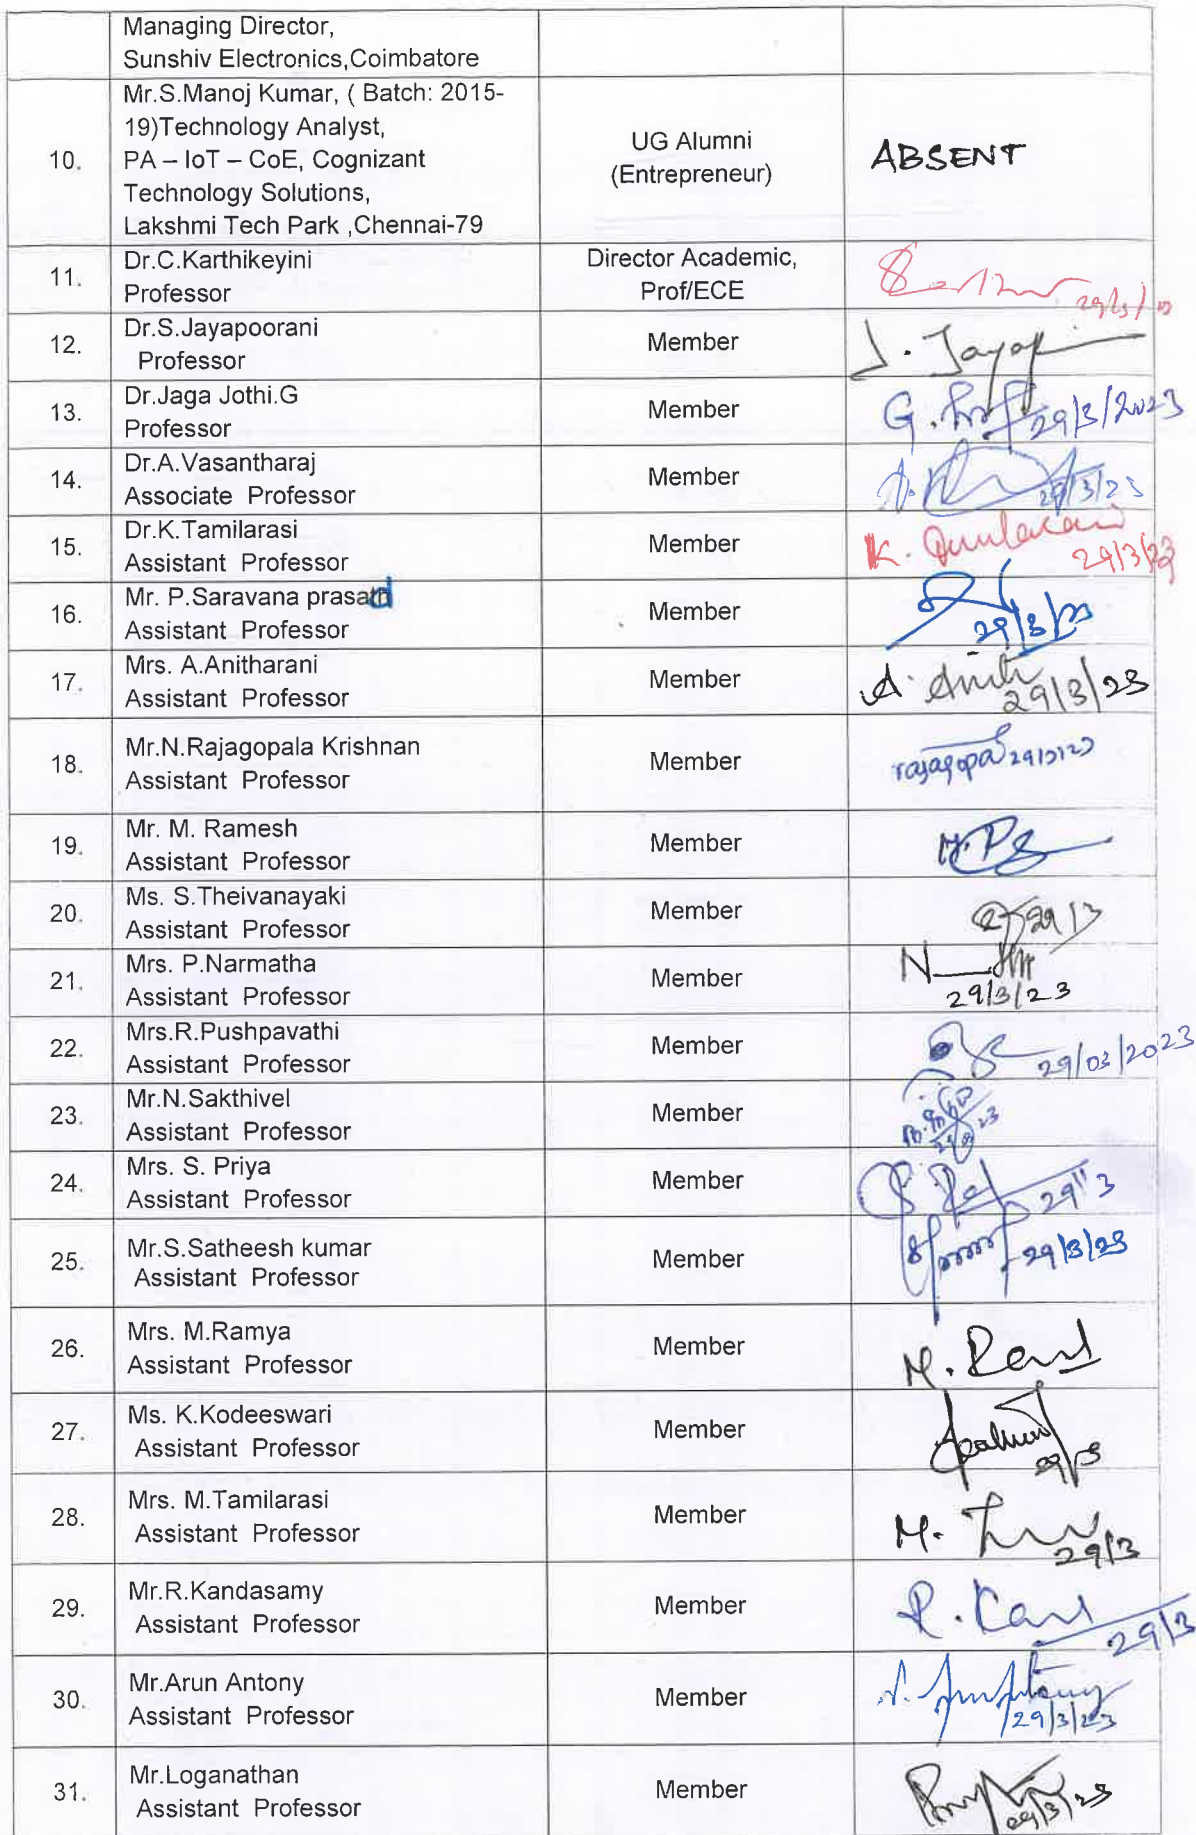 Managing Director,
Sunshiv Electronics,Coimbatore
10.
Mr.S.Manoj Kumar, ( Batch: 2015-
19)Technology Analyst,
PA – IoT – CoE, Cognizant
Technology Solutions,
Lakshmi Tech Park ,Chennai-79
UG Alumni
(Entrepreneur)
ABSENT
11.
Dr.C.Karthikeyini
Professor
Director Academic,
Prof/ECE
12.
Dr.S.Jayapoorani
Professor
Member
13.
Dr.Jaga Jothi.G
Professor
Member
G. 29/3/2023
14.
Dr.A.Vasantharaj
Associate Professor
Member
29/3/23
15.
Dr.K.Tamilarasi
Assistant Professor
Member
K.
29/3/23
16.
Mr. P.Saravana prasad
Assistant Professor
Member
29/3/23
17.
Mrs. A.Anitharani
Assistant Professor
Member
A. Anith
29/3/23
18.
Mr.N.Rajagopala Krishnan
Assistant Professor
Member
rajagopal 29/3/23
19.
Mr. M. Ramesh
Assistant Professor
Member
20.
Ms. S.Theivanayaki
Assistant Professor
Member
29/3
21.
Mrs. P.Narmatha
Assistant Professor
Member
29/3/23
22.
Mrs.R.Pushpavathi
Assistant Professor
Member
29/03/2023
23.
Mr.N.Sakthivel
Assistant Professor
Member
24.
Mrs. S. Priya
Assistant Professor
Member
25.
Mr.S.Satheesh kumar
Assistant Professor
Member
29/3/23
26.
Mrs. M.Ramya
Assistant Professor
Member
27.
Ms. K.Kodeeswari
Assistant Professor
Member
29/3
28.
Mrs. M.Tamilarasi
Assistant Professor
Member
M.
29/3
29.
Mr.R.Kandasamy
Assistant Professor
Member
R.
29/3
30.
Mr.Arun Antony
Assistant Professor
Member
29/3/23
31.
Mr.Loganathan
Assistant Professor
Member
29/3/23